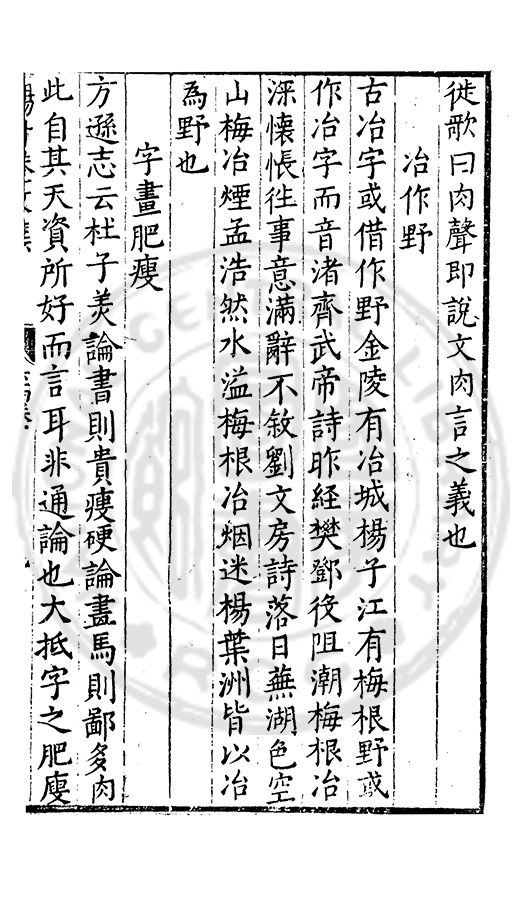 徙歌曰肉聲即說文肉言之義也
冶作野
古冶字或借作野金陵有冶城楊子江有梅根野或
作冶字而音渚齊武帝詩昨經樊鄧役阻潮梅根冶
深懷悵徃事意滿辭不敘劉文房詩落日蕪湖色空
山梅冶煙孟浩然水溢梅根冶烟迷楊葉洲皆以冶
爲野也
字畫肥瘦
方遜志云杜子羙論書則貴瘦硬論畫馬則鄙多肉
此自其天資所好而言耳非通論也大抵字之肥瘦